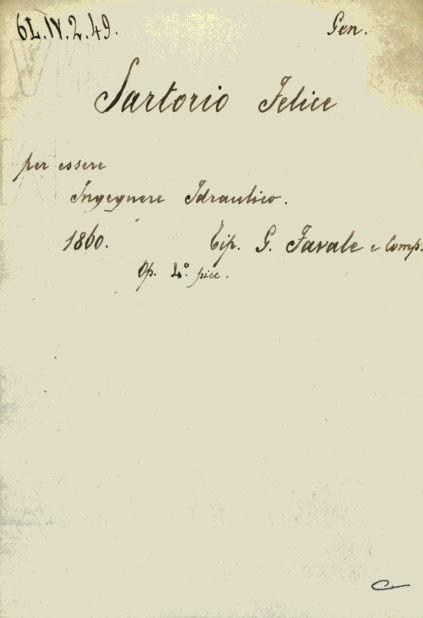 6L.IV.2.49. Gen.
Sartorio Felice
per essere
Ingegnere Idraulico.
1860. Tip. G. Favale e Comp.
Op. 4.° picc.
C